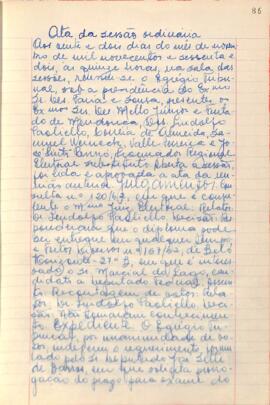 86
Ata da sessão ordinaria
Aos vinte e dois dias do mês de novem
bro de mil novecentos e sessenta e
dois, às quinze horas, na sala das
sessões, reuniu-se o Egrégio Tribu
nal, sob a presidência do Exmo
Sr Des Faria e Souza, presentes os
Exmos Srs Des Mello Junior e Furta
do de Mendonça, Drs Lindolfo
Paoliello, Corrêa de Almeida, Sa
muel Werneck, Valle Ferreira e Jo
sé Pinto Renó, Procurador Regional
Eleitoral substituto. Aberta a sessão,
foi lida e aprovada a ata da reu
nião anterior. Julgamentos: Con
sulta nº 120/62, em que é consu
lente o Mmo Juiz Eleitoral. Relator
Dr Lindolfo Paoliello. Decisão: Res
ponderam que o diploma pode
ser entregue em qualquer tempo.
nº 167/62, de Belo
Horizonte - 27ª, em que é interes
sado o Sr. Marcial do Lago, can
didato a Deputado Federal. Assun
to: Recontagem de votos. Rela
tor Dr Lindolfo Paoliello. Deci
são: Não tomaram conhecimen
to. Expediente. O Egrégio Tri
bunal, por unanimidade de vo
tos, indeferiu o requerimento formu
lado pelo Sr Deputado
de Barros, em que solicita prorro
gação do prazo para exame do